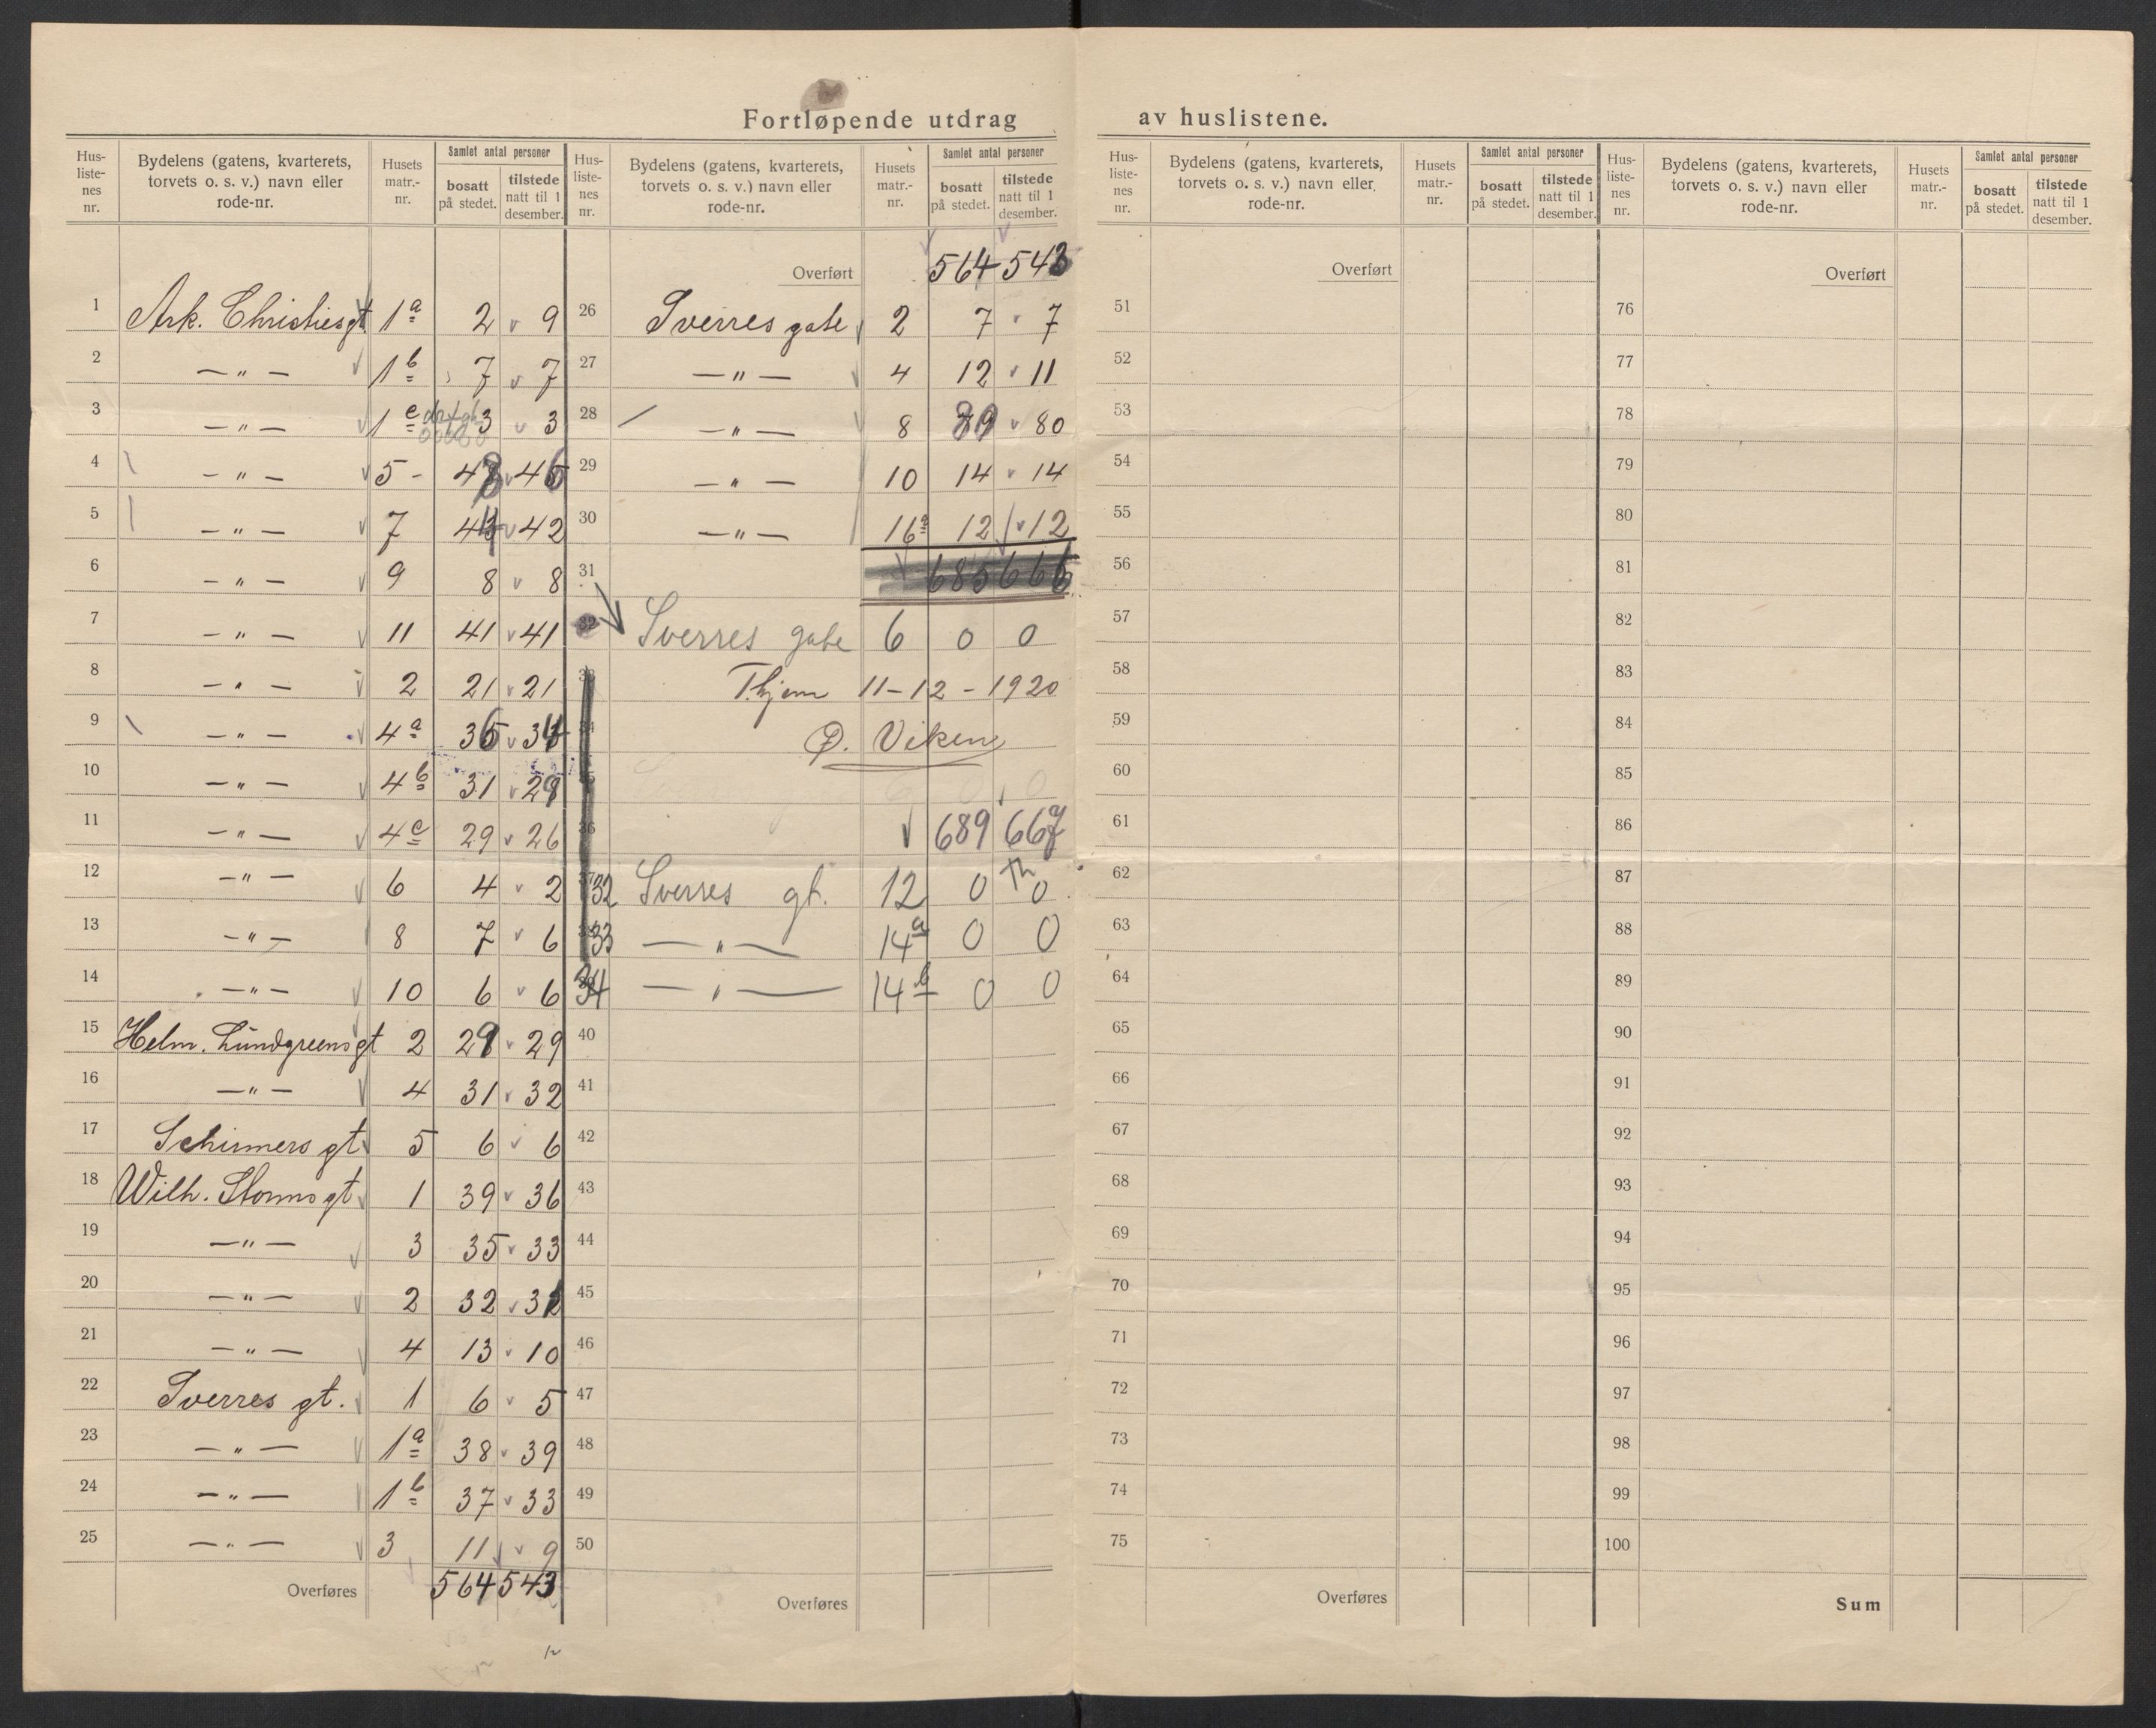 Fortløpende utdrag av huslistene.
Hus-liste-nes nr. Bydelens (gatens, kvarterets, torvets o. s. v.) navn eller rode-nr. Husets matr.-nr. Samlet antal personer bosatt på stedet. tilstede natt til 1 desember.
1 Ark. Christiesgt 1a 2 9
2 — " — 1b 7 7
3 — " — 1c 3 3
4 — " — 5 - 48 46
5 — " — 7 44 42
6 — " — 9 8 8
7 — " — 11 41 41
8 — " — 2 21 21
9 — " — 4a 36 34
10 — " — 4b 31 28
11 — " — 4c 29 26
12 — " — 6 4 2
13 — " — 8 7 6
14 — " — 10 6 6
15 Helm. Lundgreensgt 2 29 29
16 — " — 4 31 32
17 Schirmers gt 5 6 6
18 Wilh. Storms gt 1 39 36
19 — " — 3 35 33
20 — " — 2 32 32
21 — " — 4 13 10
22 Sverres gt. 1 6 5
23 — " — 1a 38 39
24 — " — 1b 37 33
25 — " — 3 11 9
Overføres 564 543
Hus-liste-nes nr. Bydelens (gatens, kvarterets, torvets o. s. v.) navn eller rode-nr. Husets matr.-nr. Samlet antal personer bosatt på stedet. tilstede natt til 1 desember.
Overført 564 543
26 Sverres gate 2 7 7
27 — " — 4 12 11
28 — " — 8 80
29 — " — 10 14 14
30 — " — 16a 12 12
31 685 666
Sverres gate 6 0 0
Thjem 11-12-1920
Ø. Viken
689 667
32 Sverres gt. 12 0 0
33 — " — 14a 0 0
34 — " — 14b 0 0
40
41
42
43
44
45
46
47
48
49
50
Overføres
Hus-liste-nes nr. Bydelens (gatens, kvarterets, torvets o. s. v.) navn eller rode-nr. Husets matr.-nr. Samlet antal personer bosatt på stedet. tilstede natt til 1 desember.
Overført
51
52
53
54
55
56
57
58
59
60
61
62
63
64
65
66
67
68
69
70
71
72
73
74
75
Overføres
Hus-liste-nes nr. Bydelens (gatens, kvarterets, torvets o. s. v.) navn eller rode-nr. Husets matr.-nr. Samlet antal personer bosatt på stedet. tilstede natt til 1 desember.
Overført
76
77
78
79
80
81
82
83
84
85
86
87
88
89
90
91
92
93
94
95
96
97
98
99
100
Sum